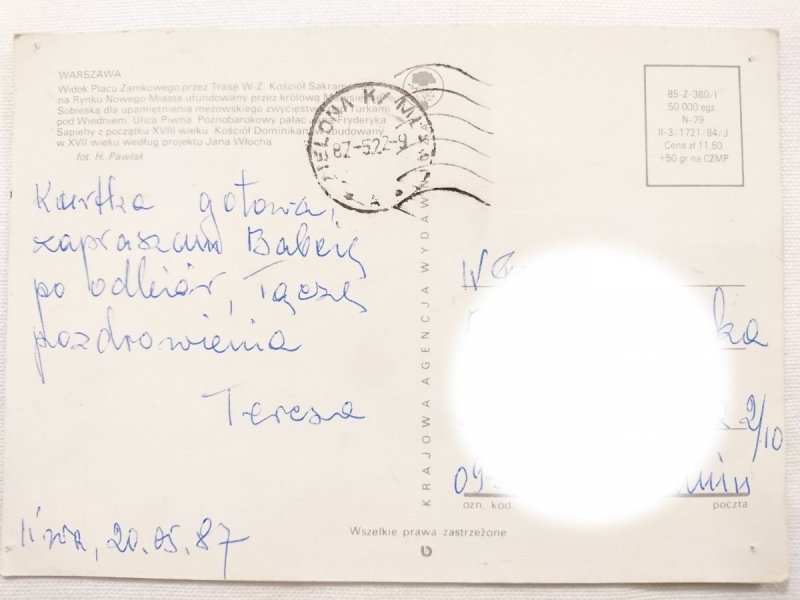 WARSZAWA
Widok Placu Zamkowego przez Trasę W-Z. Kościół Sakram
na Rynku Nowego Miasta ufundowany przez królową
Sobieską dla upamiętnienia mężowskiego zwycięstwa Turkami
pod Wiedniem. Ulica Piwna. Późnobarokowy pałac Fryderyka
Sapiehy z początku XVIII wieku. Kościół Dominikan budowany
w XVII wieku według projektu Jana Włocha
fot. H. Pawlak
87-5.22-9
85-Z 380/I
50 000 egz.
N-79
II-3/1721/84/J
Cena zł 11,50
+50 gr na CZMP
Kartka gotowa,
zapraszam Babcię
po odbiór, Łączę
pozdrowienia
Teresa
20.05.87
KRAJOWA AGENCJA WYDAWN
ka
2/10
09-
ozn. kod.
poczta
Wszelkie prawa zastrzeżone